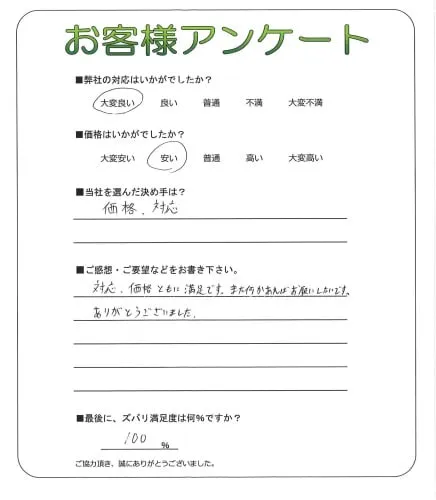 お客様アンケート
■弊社の対応はいかがでしたか?
大変良い 良い 普通 不満 大変不満
■価格はいかがでしたか?
大変安い 安い 普通 高い 大変高い
■当社を選んだ決め手は?
価格、対応
■ご感想・ご要望などをお書き下さい。
対応、価格ともに満足です。また何かあればお願いしたいです。
ありがとうございました。
■最後に、ズバリ満足度は何%ですか?
100 %
ご協力頂き、誠にありがとうございました。